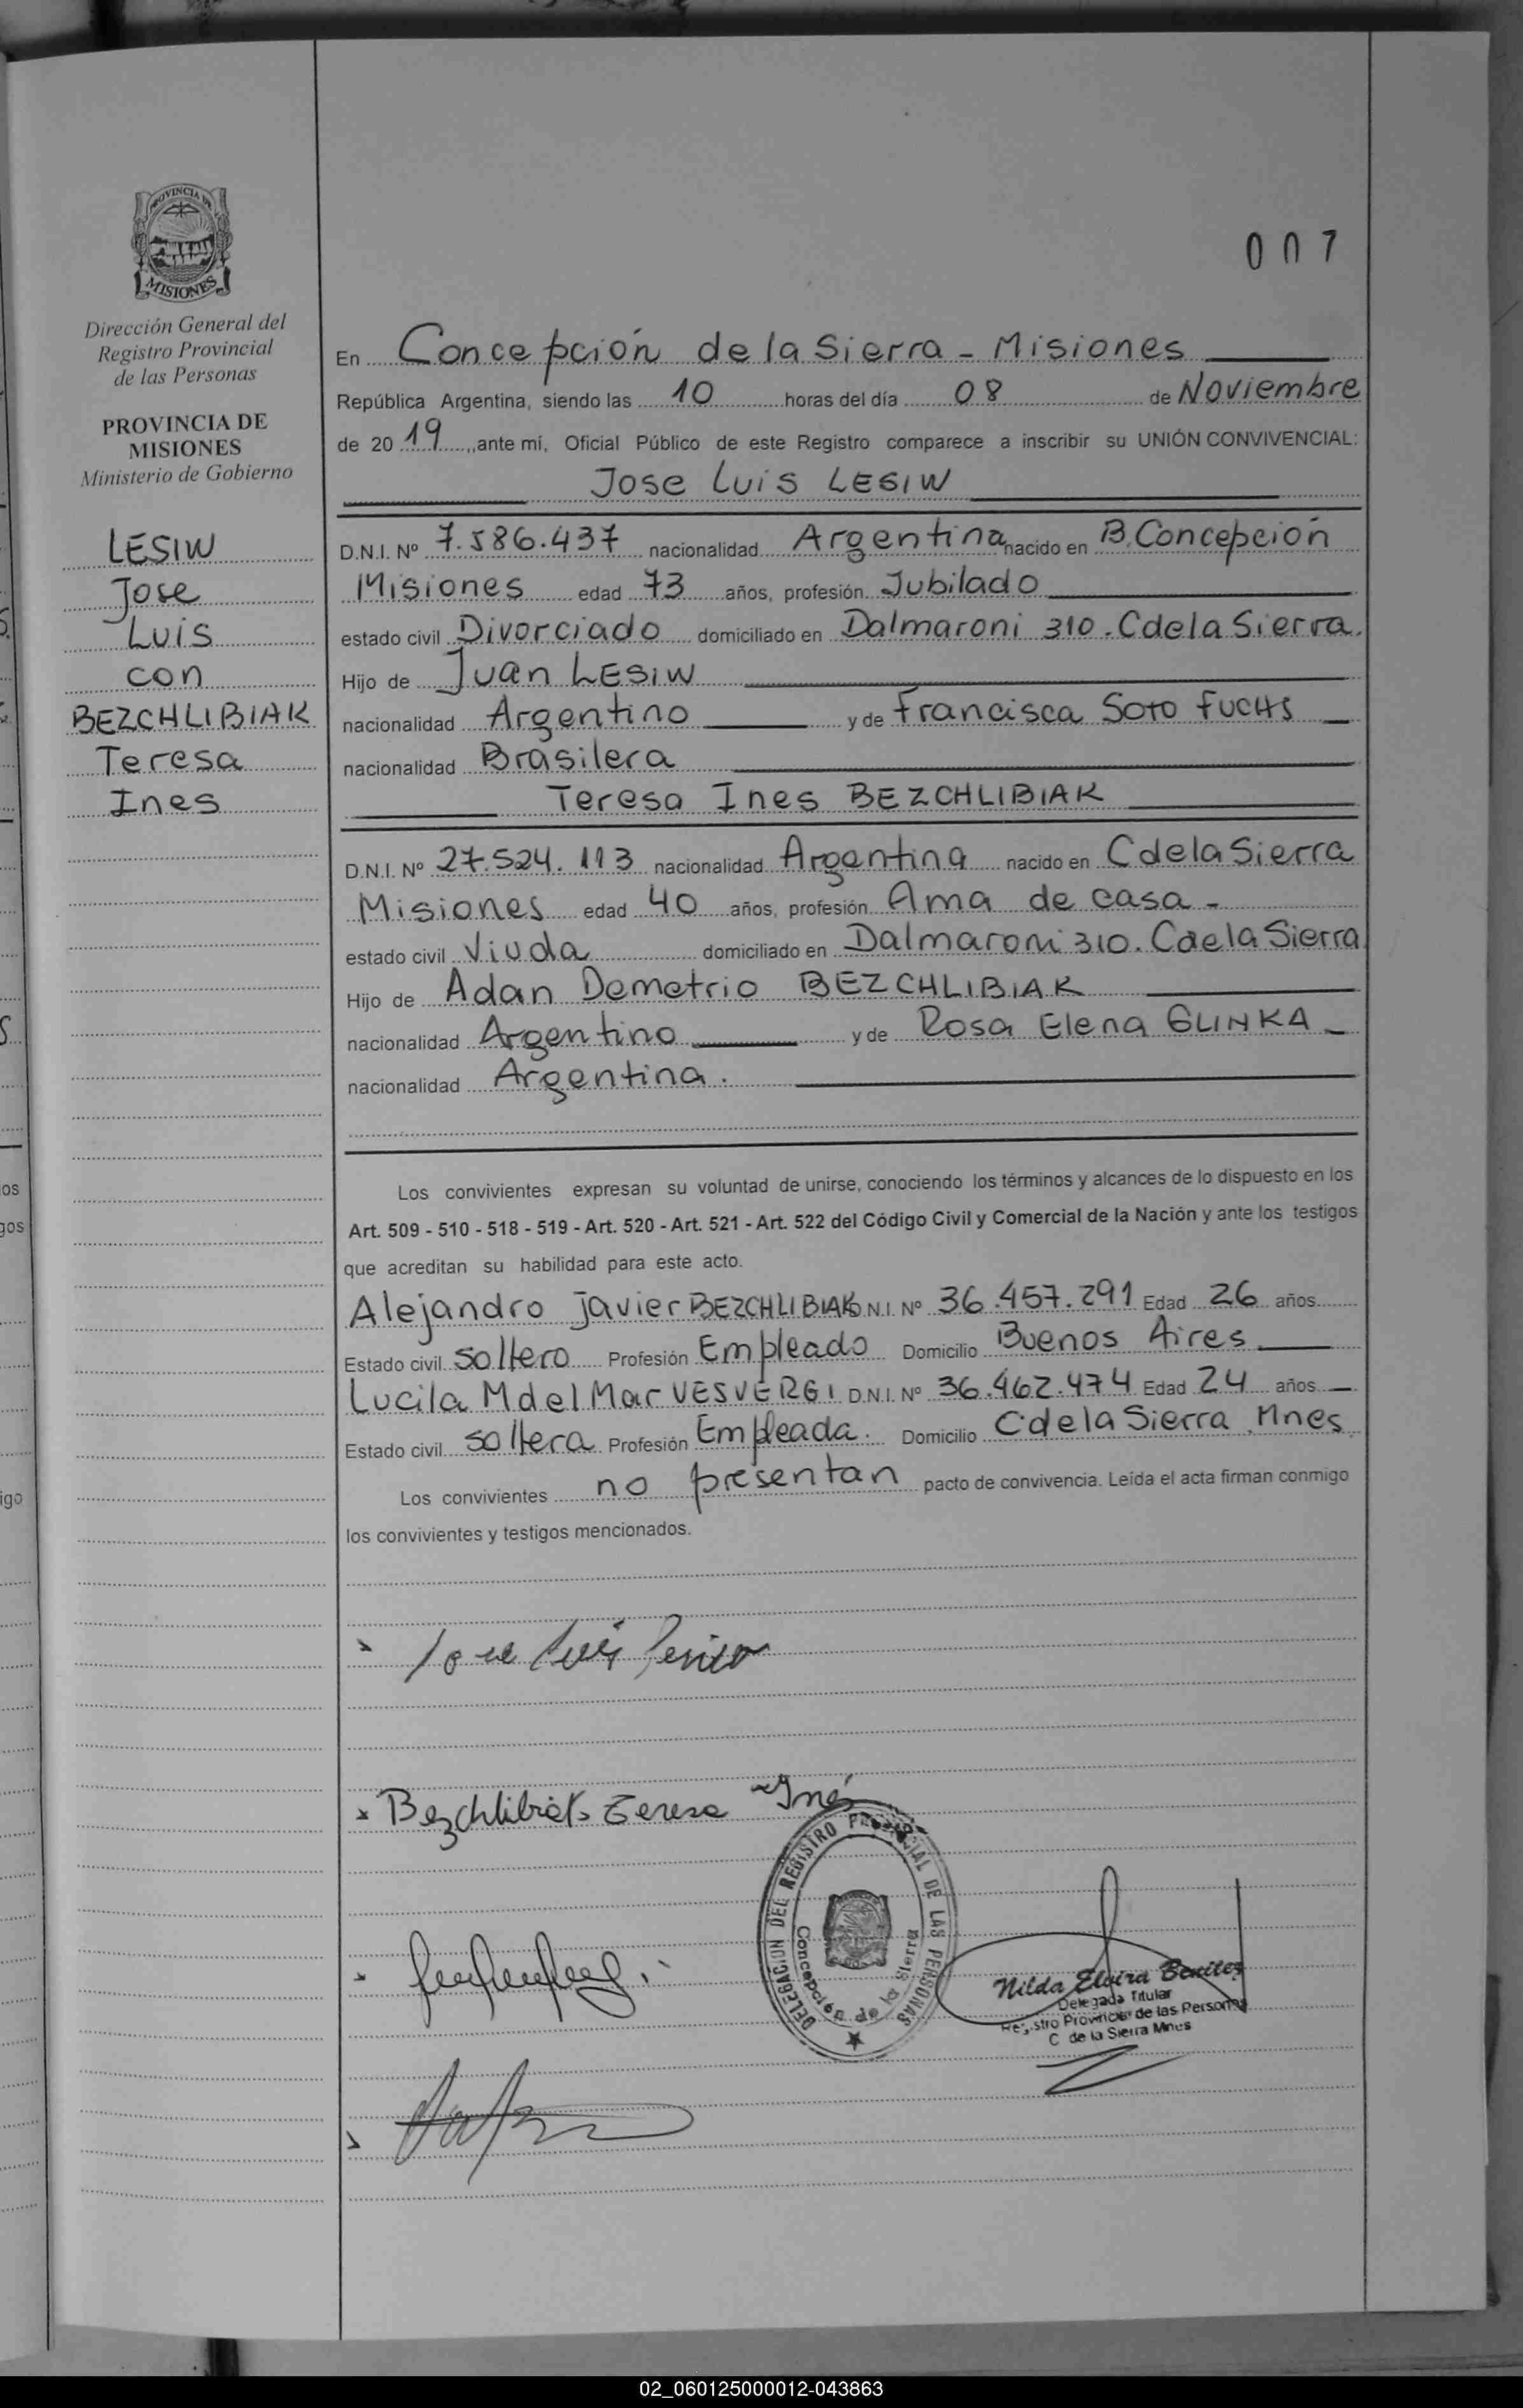 PROVINCIA DE
MISIONES
Dirección General del
Registro Provincial
de las Personas
PROVINCIA DE
MISIONES
Ministerio de Gobierno
LESIW
Jose
Luis
con
BEZCHLIBIAK
Teresa
Ines
007
En Concepción de la Sierra - Misiones
República Argentina, siendo las 10 horas del día 08 de Noviembre
de 20 19, ante mí, Oficial Público de este Registro comparece a inscribir su UNIÓN CONVIVENCIAL:
Jose Luis LESIW
D.N.I. Nº 7.586.437 nacionalidad Argentina nacido en B. Concepción
Misiones edad 73 años, profesión Jubilado
estado civil Divorciado domiciliado en Dalmaroni 310. C de la Sierra.
Hijo de Juan LESIW
nacionalidad Argentino y de Francisca SOTO FUCHS
nacionalidad Brasilera
Teresa Ines BEZCHLIBIAK
D.N.I. Nº 27.524.113 nacionalidad Argentina nacido en C de la Sierra
Misiones edad 40 años, profesión Ama de casa -
estado civil Viuda domiciliado en Dalmaroni 310. C de la Sierra
Hijo de Adan Demetrio BEZCHLIBIAK
nacionalidad Argentino y de Rosa Elena GLINKA -
nacionalidad Argentina.
Los convivientes expresan su voluntad de unirse, conociendo los términos y alcances de lo dispuesto en los
Art. 509 - 510 - 518 - 519 - Art. 520 - Art. 521 - Art. 522 del Código Civil y Comercial de la Nación y ante los testigos
que acreditan su habilidad para este acto.
Alejandro Javier BEZCHLIBIAK D.N.I. Nº 36.457.291 Edad 26 años
Estado civil soltero Profesión Empleado Domicilio Buenos Aires
Lucila M del Mar VESVERGI D.N.I. Nº 36.462.474 Edad 24 años
Estado civil soltera Profesión Empleada. Domicilio C de la Sierra, Mnes.
Los convivientes no presentan pacto de convivencia. Leída el acta firman conmigo
los convivientes y testigos mencionados.
Jose Luis Lesiw
Bezchlibiak Teresa Inés
DELEGACION DEL REGISTRO PROVINCIAL DE LAS PERSONAS
Concepción de la Sierra
Nilda Elvira Benitez
Delegada Titular
Registro Provincial de las Personas
C de la Sierra Mnes
02_060125000012-043863